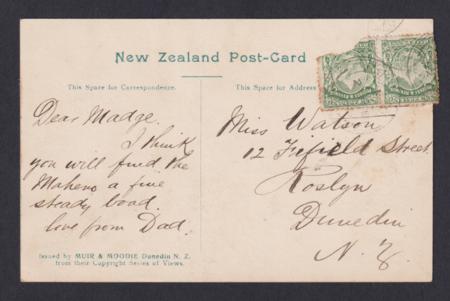 New Zealand Post-Card
This Space for Correspondence.
This Space for Address
Dear Madge.
I think
you will find the
Maheno a fine
steady boat.
love from Dad.
Miss Watson
12 Fifield Street
Roslyn
Dunedin
N. Z.
Issued by MUIR & MOODIE Dunedin N. Z.
from their Copyright Series of Views.